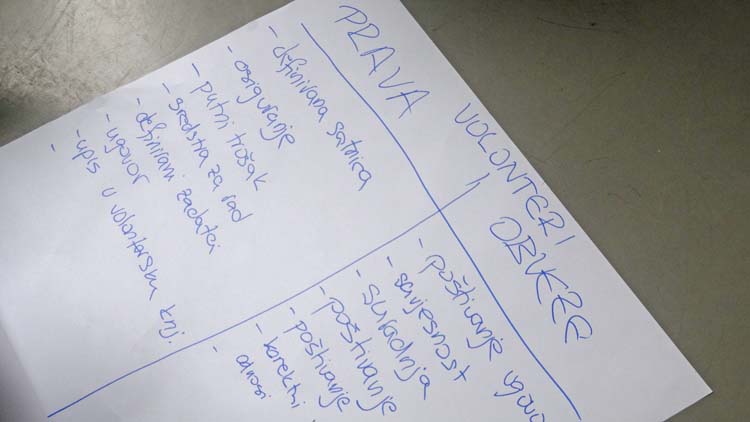 VOLONTERI
PRAVA
- definirana satnica
- osiguranje
- putni trošak
- sredstva za rad
- definirani zadatci
- ugovor
- upis u volontersku knj.
-
OBVEZE
- poštivanje
- savjesnost
- suradnja
- poštivanje
- poštivanje
- korektni
odnosi
-